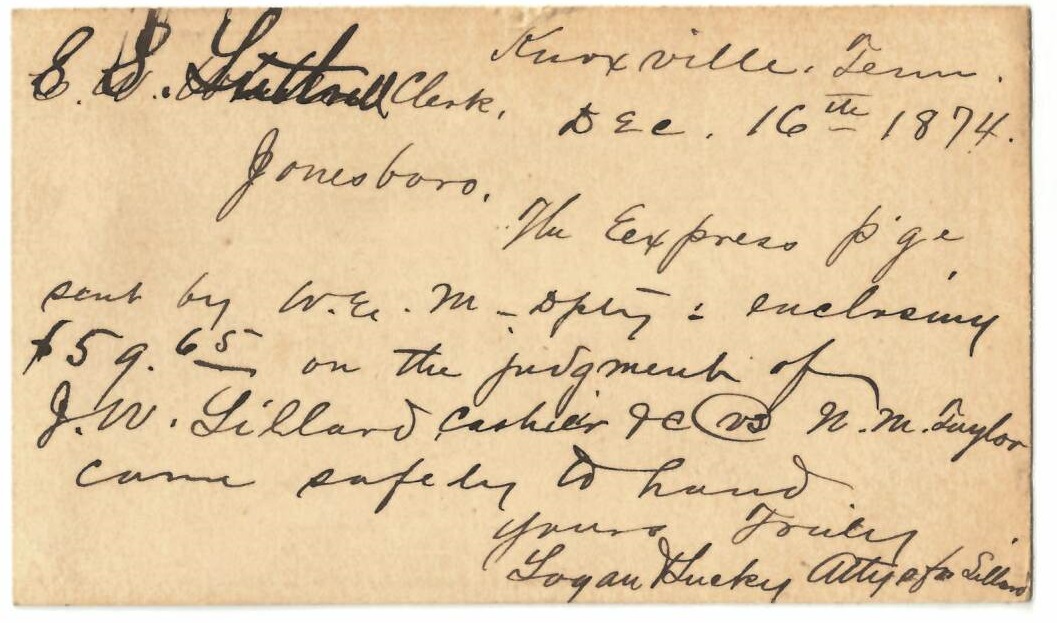 Knoxville, Tenn.
E. S. Luttrell Clerk, Dec. 16th 1874.
Jonesboro.
The Eexpress p'g'e
sent by W.E. M - Dpty : enclosing
$59.65 on the judgment of
J.W. Lillard Cashier &c vs N.M. Taylor
came safely to hand
yours Truly
Logan Huckey Attys for Lillard